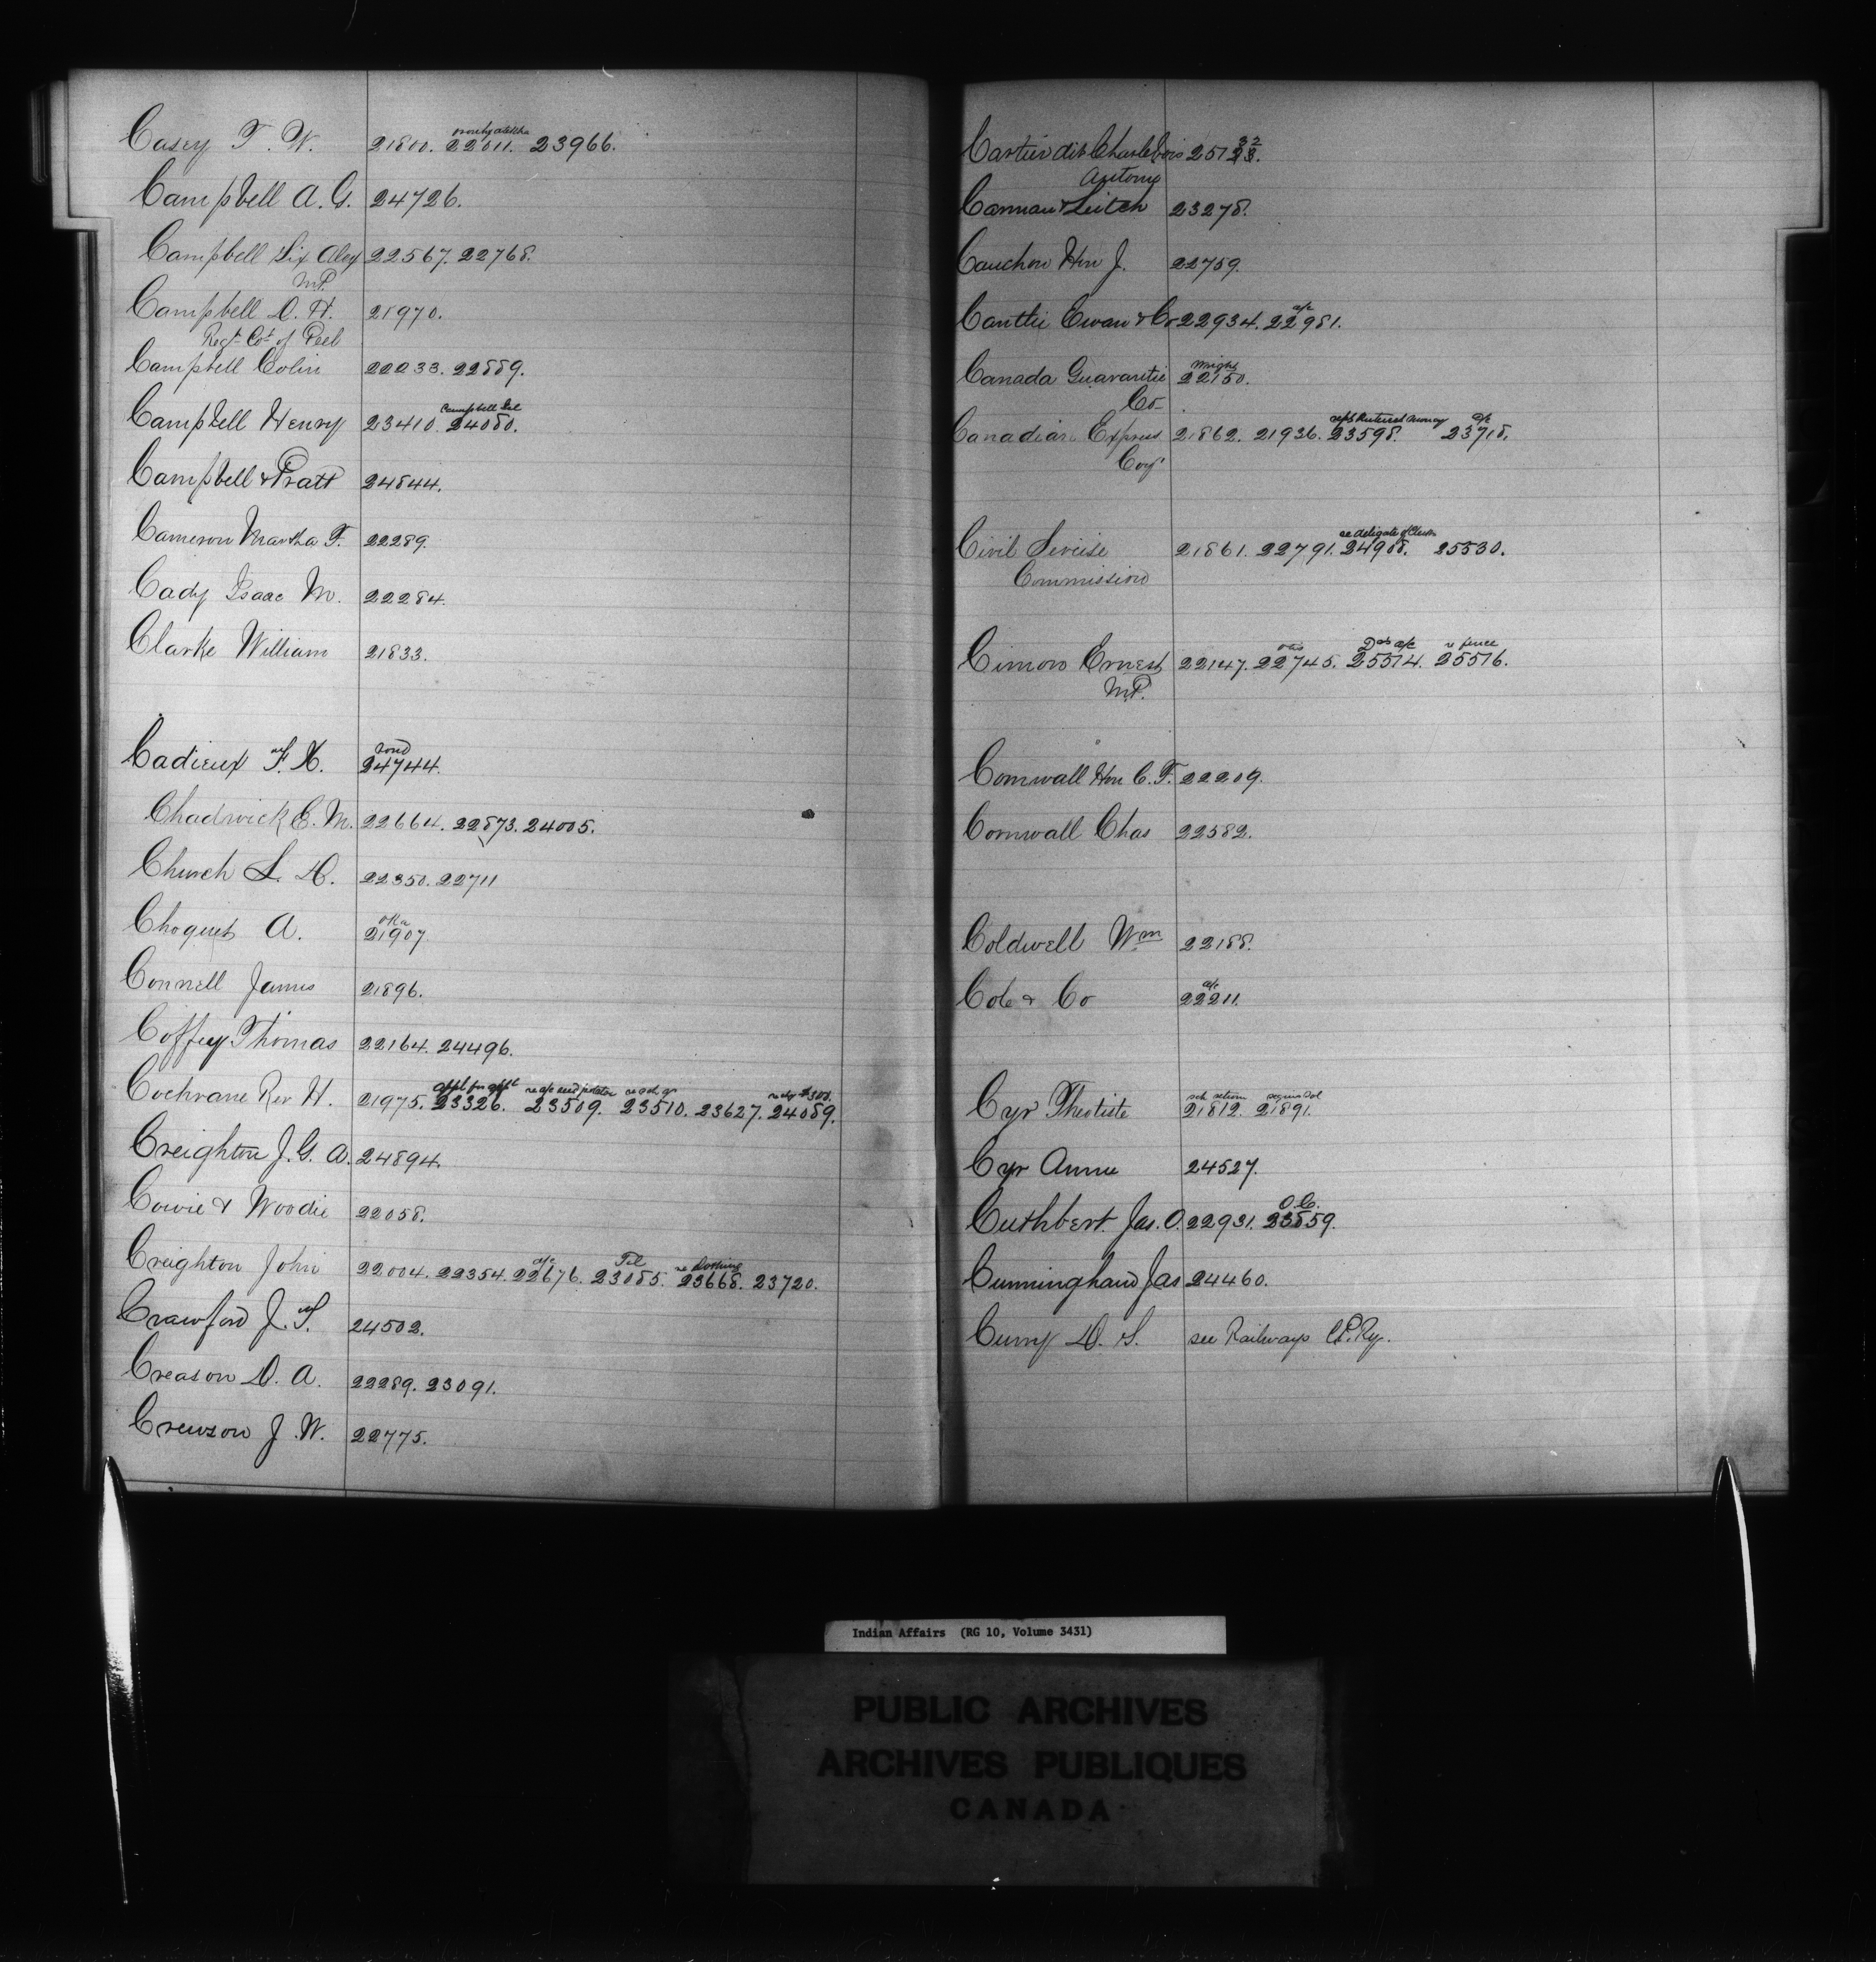 Casey T. W. 21800. 22011. 23966.
Campbell A. G. 24726.
Campbell Sir Alex 22567. 22768.
M.P.
Campbell D. H. 21970.
Regt Cot of Peel
Campbell Colin 22233. 22889.
Campbell Henry 23410. 24080.
Campbell & Pratt 24844.
Cameron Martha F. 22289.
Cady Isaac M. 22284.
Clarke William 21833.
Cadieux F. X. 24744.
Chadwick E. M. 22664. 22873. 24005.
Church L. D. 22350. 22711
Oka
Choquet A. 21907.
Connell James 21896.
Coffey Thomas 22164. 24496.
appl for appt re a/c seed potatoes
Cochrane Rev H. 21975. 23326. 23509. 23510. 23627. 24089.
Creighton J. G. A. 24894.
Cowie & Woodie 22058.
a/c Tel re clothing
Creighton John 22004. 22354. 22676. 23085. 23668. 23720.
Crawford J. S. 24502.
Creason D. A. 22289. 23091.
Crewson J. W. 22775.
Cartier dit Charlebois 25132
Antoine
Carman & Leitch 23278.
Cauchon Hon J. 22759.
a/c
Cantlie Ewan & Co 22934. 22981.
Wright
Canada Guarantee 22150.
Co
a/c
Canadian Express 21862. 21936. 23598. 23718.
Coy
Civil Service 21861. 22791. 24908. 25530.
Commission
a/c re fence
Cimon Ernest 22147. 22745. 25514. 25516.
M.P.
Cornwall Hon C. F. 22209.
Cornwall Chas 22582.
Coldwell Wm 22188.
a/c
Cole & Co 22211.
Cyr Theotiste 21812. 21891.
Cyr Annie 24527.
O.C.
Cuthbert Jas. O. 22931. 23859.
Cunningham Jas 24460.
Curry D. S. see Railways C.P.Ry.
Indian Affairs (RG 10, Volume 3431)
PUBLIC ARCHIVES
ARCHIVES PUBLIQUES
CANADA